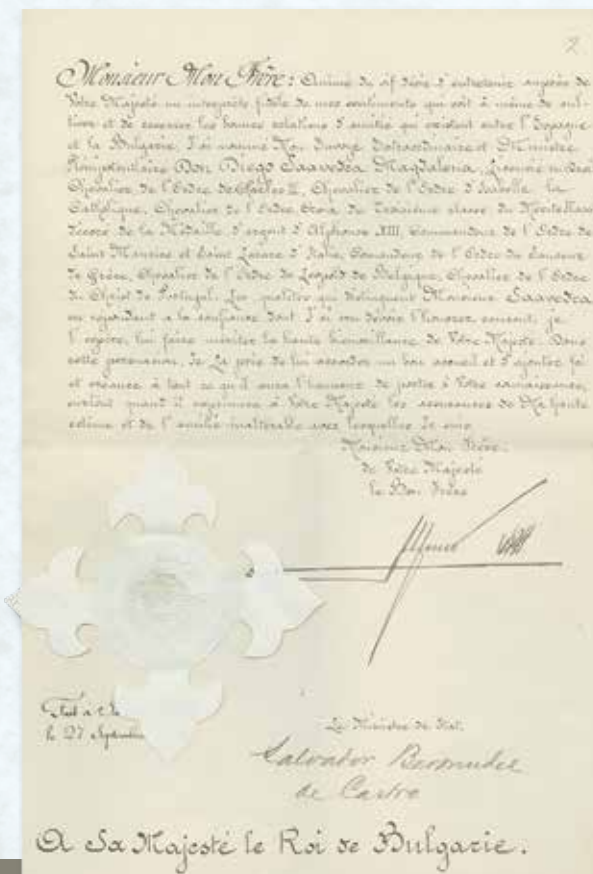 2
Monsieur Mon Frère: Animé du vif désir d'entretenir auprès de
Votre Majesté un interprète fidèle de mes sentiments qui soit à même de cul-
tiver et de resserrer les bonnes relations d'amitié qui existent entre l'Espagne
et la Bulgarie, J'ai nommé Mon Envoyé Extraordinaire et Ministre
Plénipotentiaire Don Diego Saavedra Magdalena, Licencié en Droit
Chevalier de l'Ordre de Charles III, Chevalier de l'Ordre d'Isabelle la
Catholique, Chevalier de l'Ordre Croix de Troisième classe du
décoré de la Médaille d'argent d'Alphonse XIII, Commandeur de l'Ordre de
Saint Maurice et Saint Lazare d'Italie, Commandeur de l'Ordre du Sauveur
de Grèce, Chevalier de l'Ordre de Léopold de Belgique, Chevalier de l'Ordre
du Christ de Portugal. Les qualités qui distinguent Monsieur Saavedra
en répondent à la confiance dont J'ai cru devoir l'honorer
l'espère, lui faire mériter la haute bienveillance de Votre Majesté. Dans
cette persuasion, Je La prie de lui accorder un bon accueil et d'ajouter foi
et créance à tout ce qu'il aura l'honneur de porter à Votre connaissance,
surtout quand il exprimera à Votre Majesté les assurances de Ma haute
estime et de l'amitié inaltérable avec lesquelles Je suis
Monsieur Mon Frère,
de Votre Majesté
le Bon Frère
Alfonso
Fait à
le 27 Septembre
Le Ministre de
Salvador Bermudez
de Castro
A Sa Majesté le Roi de Bulgarie.